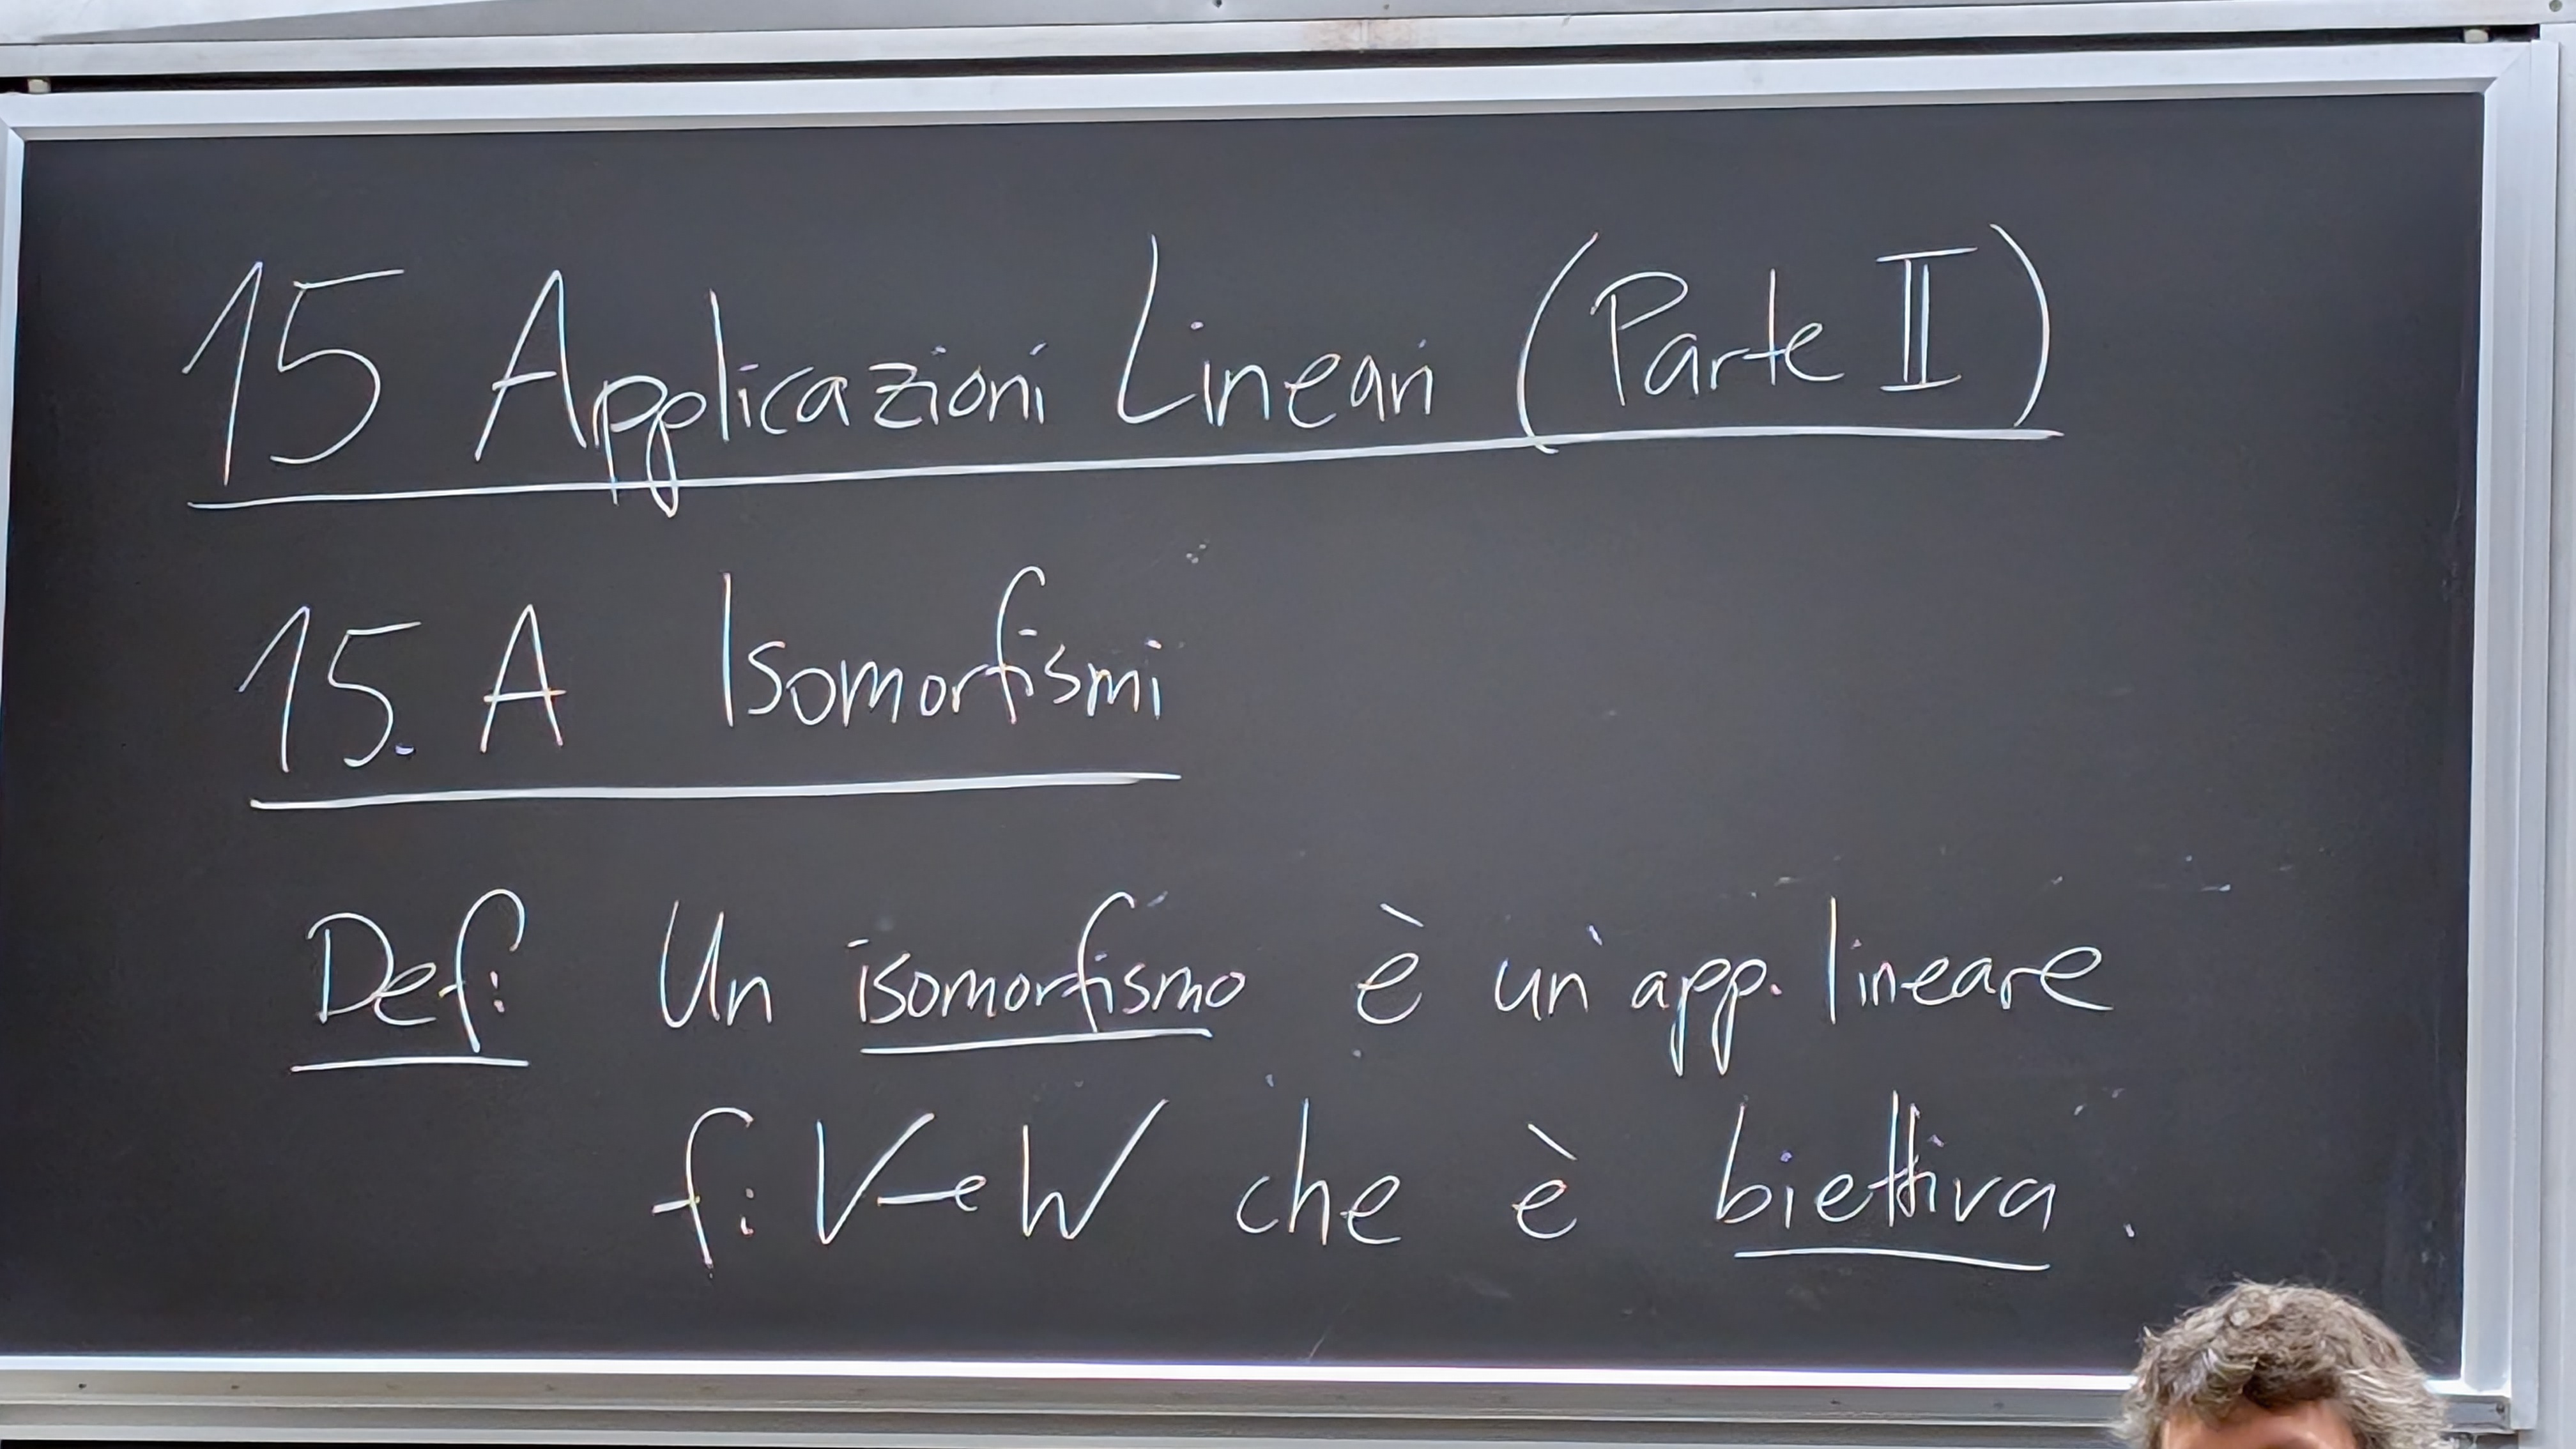 15 Applicazioni Lineari (Parte II)
15. A Isomorfismi
Def: Un isomorfismo è un'app. lineare
f: V→W che è biettiva.